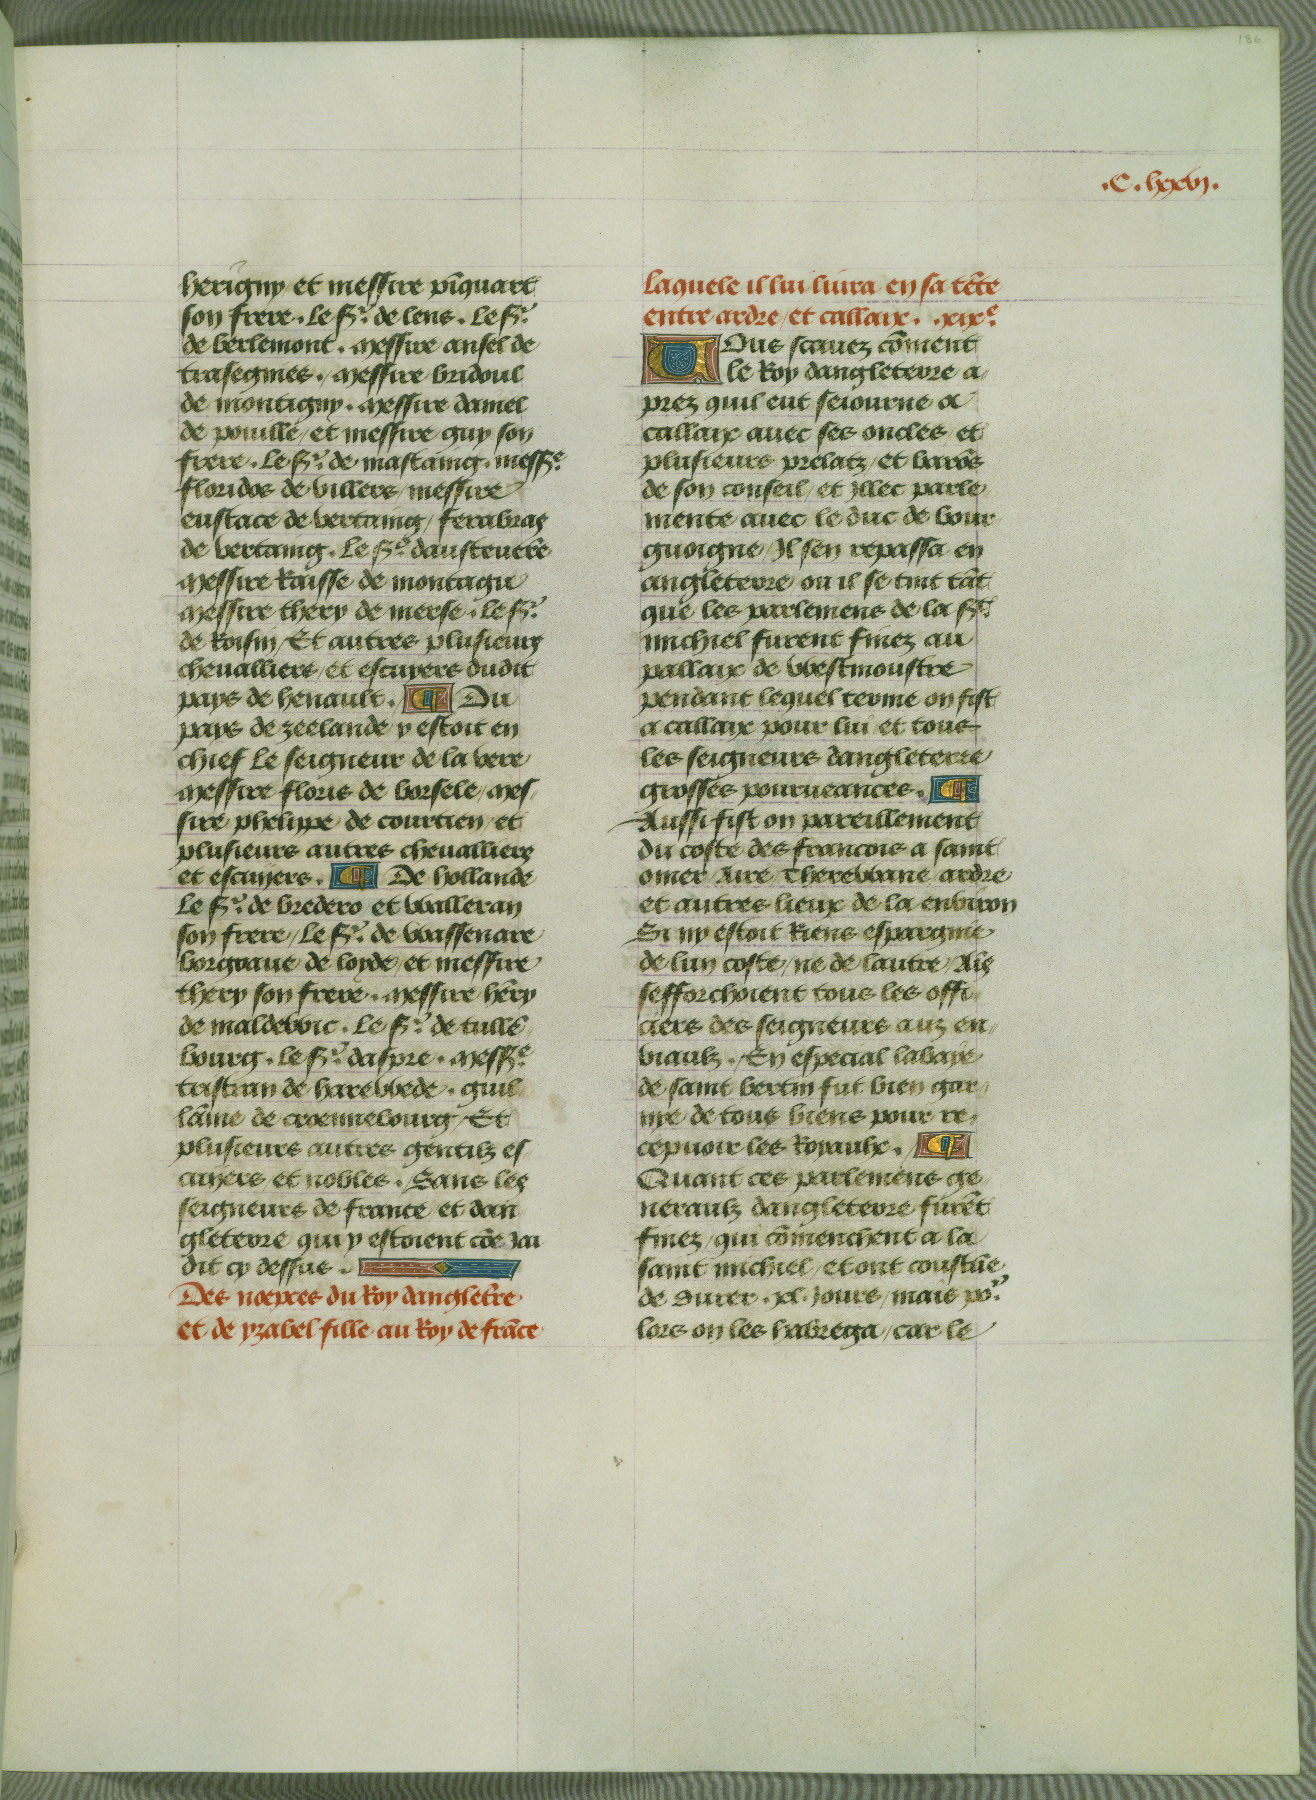 186
.C. lxxvj.
herigny et messire pīquart
son frere. Le Sr. de lens. Le Sr.
de berlemont. messire ansel de
trasegnies. messire bridoul
de montigny. messire daniel
de pouille/ et messire guy son
frere. Le Sr. de mastaing. messre
floridos de villers/ messire
eustace de vertaing/ ferabras
de vertaing. Le Sr. dausteuere
messire Raisse de montagu
messire thery de merse. Le Sr.
de Roisin/ Et autres plusieurs
cheualliers/ et escuyers dudit
pays de henault. Du
pays de zeelande y estoit en
chief Le seigneur de la vere
messire floris de borsele/ mes/
sire phelippe de courtien/ et
plusieurs autres cheualliers
et escuyers. De hollande
Le Sr. de bredero et walleran
son frere/ Le Sr. de wassenare
borgvaue de loyde/ et messire
thery son frere. messire hēry
de maldewic. Le Sr. de tullē/
bourg. Le Sr. daspre. messre
tristran de harewede. guil
lāme de croennebourg/ Et
plusieurs autres gentilz es
cuyers et nobles. Sans les
seigneurs de france et dan
gleterre qui y estoient cōe jai
dit cy dessus.
Des noepces du Roy dangletr̄e
et de yzabel fille au Roy de frāce
laquele il lui liura en sa tēte
entre ardre/ et callaix. .xixe.
Vous scauez cōment
le Roy dangleterre a/
prez quil eut seiourne a
callaix auec ses oncles et
plusieurs prelatz/ et barōs
de son conseil/ et jllec parle
mente auec le duc de bour
guoigne/ Jl sen repassa en
angleterre ou il se tint tāt
que les parlemens de la St
michiel furent finez au
pallaix de westmoustre
pendant lequel terme on fist
a callaix pour lui et tous
les seigneurs dangleterre
grosses pourueances.
Aussi fist on pareillement
du coste des francois a saint
omer Aire Therewane ardre
et autres lieux de la environ
Si ny estoit Riens espargnie
de lun coste/ ne de lautre/ Ais
sefforchoient tous les offi/
ciers des seigneurs auz en/
viaulx. En especial labaye
de saint bertin fut bien gar/
nye de tous biens pour re/
cepuoir les Royaulx.
Quant ces parlemens ge/
neraulx dangleterre furēt
finez/ qui cōmenchent a la
saint michiel/ et ont coustūe
de durer .xl. jours/ mais por.
lors on les habrega/ car le